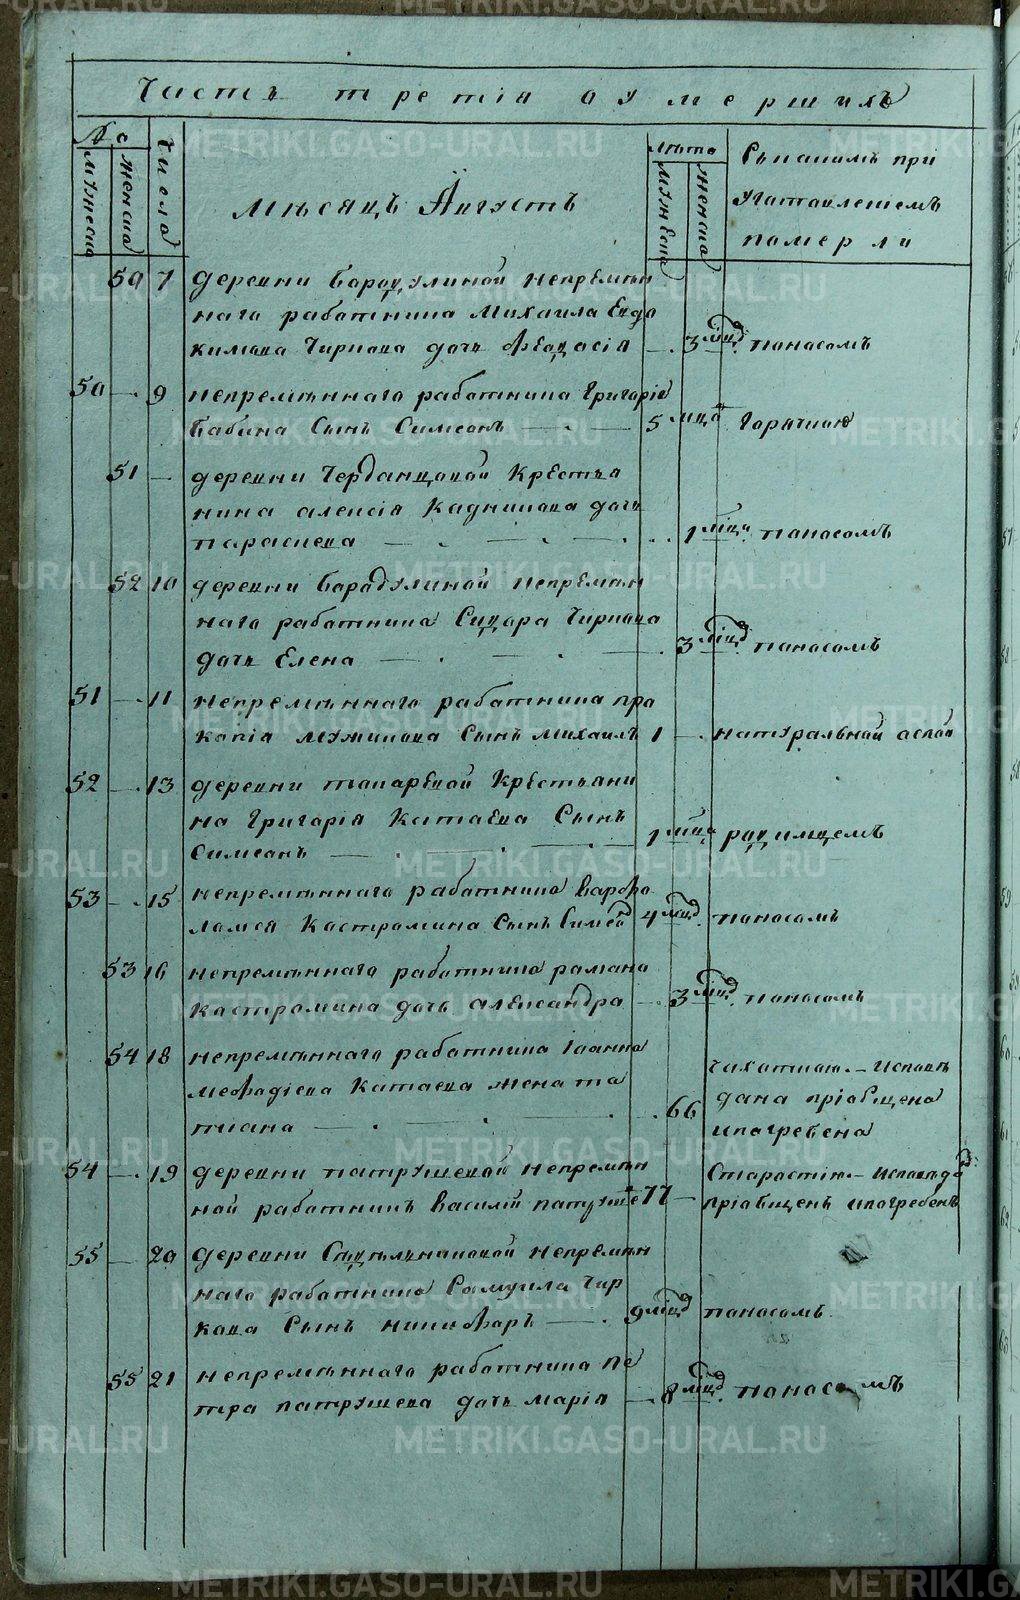 Часть третія о умершихъ
№
мужеска
женска
числа
Мѣсяцъ Августъ
лѣта
мужеска
женска
померли
50 7 деревни Бородулиной непремѣн
наго работника Михаила Евдо
кимова Чиркова дочь Ѳеодосія — 3 мцд. поносомъ
50 — 9 непремѣннаго работника Григорія
Бабина Сынъ Симеонъ — 5 мцо горячкою
51 — деревни Черданцовой Крестья
нина Алексія Кадникова дочь
параскева — 1 мца. поносомъ
52 10 деревни Бородулиной непремѣн
наго работника Сидора Чиркова
дочь Елена — 3 мцд. поносомъ
51 — 11 непремѣннаго работника про
копія мужикова Сынъ Михаилъ 1 — натуральной оспой
52 — 13 деревни токаревой Крестьяни
на Григорія Катаева Сынъ
Симеонъ — 1 мца родимцемъ
53 — 15 непремѣннаго работника Варѳо
ломея Костромина Сынъ Симео 4 мцд. поносомъ
53 16 непремѣннаго работника романа
Костромина дочь Александра — 3 мцд. поносомъ
54 18 непремѣннаго работника Іоанна
меѳодіева Катаева жена та
тіана — 66
чахоткою. — исповѣ
дана пріобщена
и погребена
54 — 19 деревни патрушевой непремѣн
ной работникъ василій патруше 77 —
Старостію. — исповѣда
пріобщенъ и погребенъ
55 — 20 деревни Седельниковой непремѣн
наго работника Самуила Чир
кова Сынъ никифоръ — 9 мцд поносомъ
55 21 непремѣннаго работника пе
тра патрушева дочь марія — 8 мцд. поносомъ
METRIKI.GASO-URAL.RU